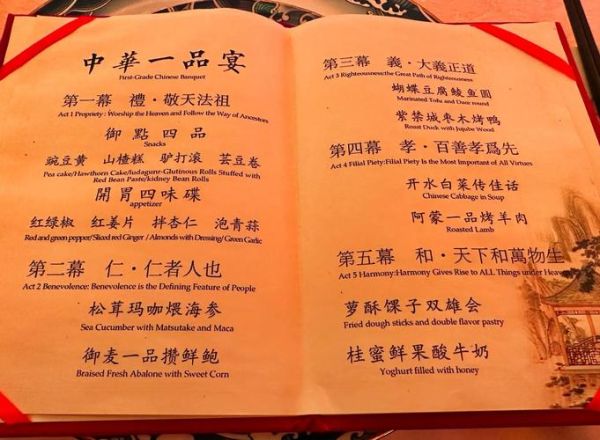 中華一品宴
First-Grade Chinese Banquet
第一幕 禮·敬天法祖
Act 1 Propriety: Worship the Heaven and Follow the Way of Ancestors
御點四品
Snacks
豌豆黄 山楂糕 驴打滚 芸豆卷
Pea cake/Hawthorn Cake/ludagunr-Glutinous Rolls Stuffed with
Red Bean Paste/kidney Bean Rolls
開胃四味碟
appetizer
红绿椒 红姜片 拌杏仁 泡青蒜
Red and green pepper/Sliced red Ginger / Almonds with Dressing/ Green Garlic
第二幕 仁·仁者人也
Act 2 Benevolence: Benevolence is the Defining Feature of People
松茸玛咖煨海参
Sea Cucumber with Matsutake and Maca
御麦一品攒鲜鲍
Braised Fresh Abalone with Sweet Corn
第三幕 義·大義正道
Act 3 Righteousness:the Great Path of Righteousness
蝴蝶豆腐鲮鱼圆
Marinated Tofu and Dace round
紫禁城枣木烤鸭
Roast Duck with Jujube Wood
第四幕 孝·百善孝爲先
Act 4 Filial Piety:Filial Piety Is the Most Important of All Virtues
开水白菜传佳话
Chinese Cabbage in Soup
阿蒙一品烤羊肉
Roasted Lamb
第五幕 和·天下和萬物生
Act 5 Harmony:Harmony Gives Rise to ALL Things under Heaven
萝酥馃子双雄会
Fried dough sticks and double flavor pastry
桂蜜鲜果酸牛奶
Yoghurt filled with honey